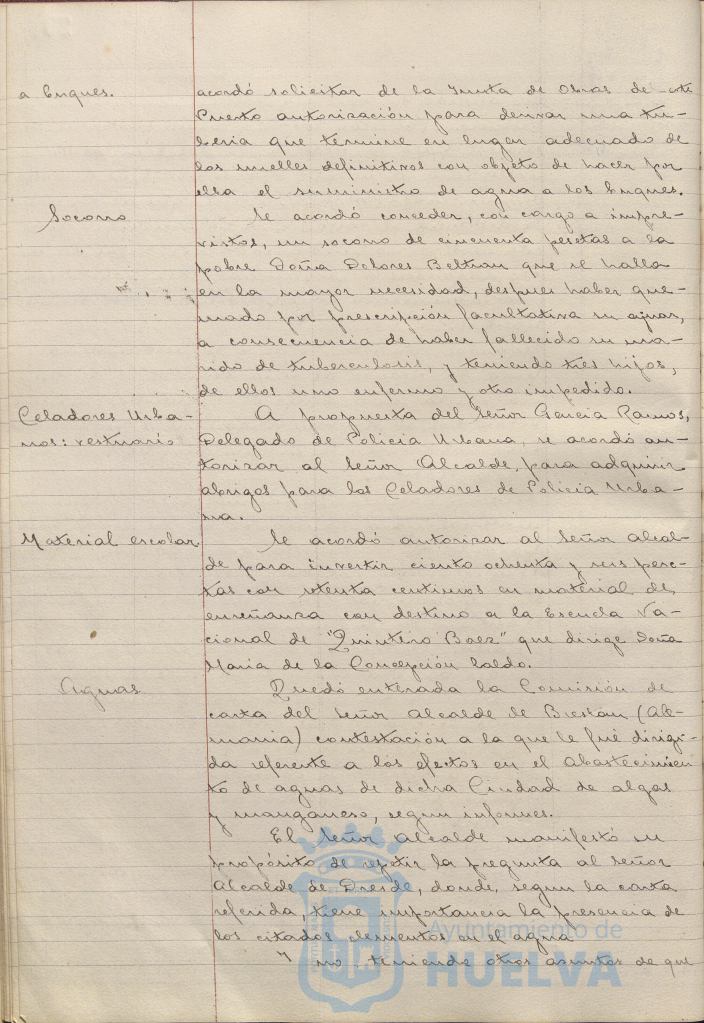 a buques.
acordó solicitar de la Junta de Obras de este
Puerto autorización para derivar una tu-
beria que termine en lugar adecuado de
los muelles definitivos con objeto de hacer por
ella el suministro de agua a los buques.
Socorro
Se acordó conceder, con cargo a impre-
vistos, un socorro de cincuenta pesetas a la
pobre Doña Dolores Beltran que se halla
en la mayor necesidad, despues haber que-
mado por prescripción facultativa su ajuar,
a consecuencia de haber fallecido su ma-
rido de tuberculosis, y teniendo tres hijos,
de ellos uno enfermo y otro impedido.
Celadores Urba-
nos: vestuario
A propuesta del Señor Garcia Ramos,
Delegado de Policia Urbana, se acordó au-
torizar al Señor Alcalde, para adquirir
abrigos para los Celadores de Policia Urba-
na.
Material escolar
Se acordó autorizar al Señor Alcal-
de para invertir ciento ochenta y seis pese-
tas con setenta centimos en material de
enseñanza con destino a la Escuela Na-
cional de "Quintero Baez" que dirige Doña
Maria de la Concepción
Aguas
Quedó enterada la Comisión de
carta del Señor Alcalde de Breslau (Ale-
mania) contestación a la que le fué dirigi-
da referente a los efectos en el abastecimien
to de aguas de dicha Ciudad de algas
y manganeso, segun informes.
El Señor Alcalde manifestó su
propósito de repetir la pregunta al Señor
Alcalde de Dresde, donde, segun la carta
referida, tiene importancia la presencia de
los citados elementos en el agua
Y no teniendo otros asuntos de que
Ayuntamiento de
HUELVA